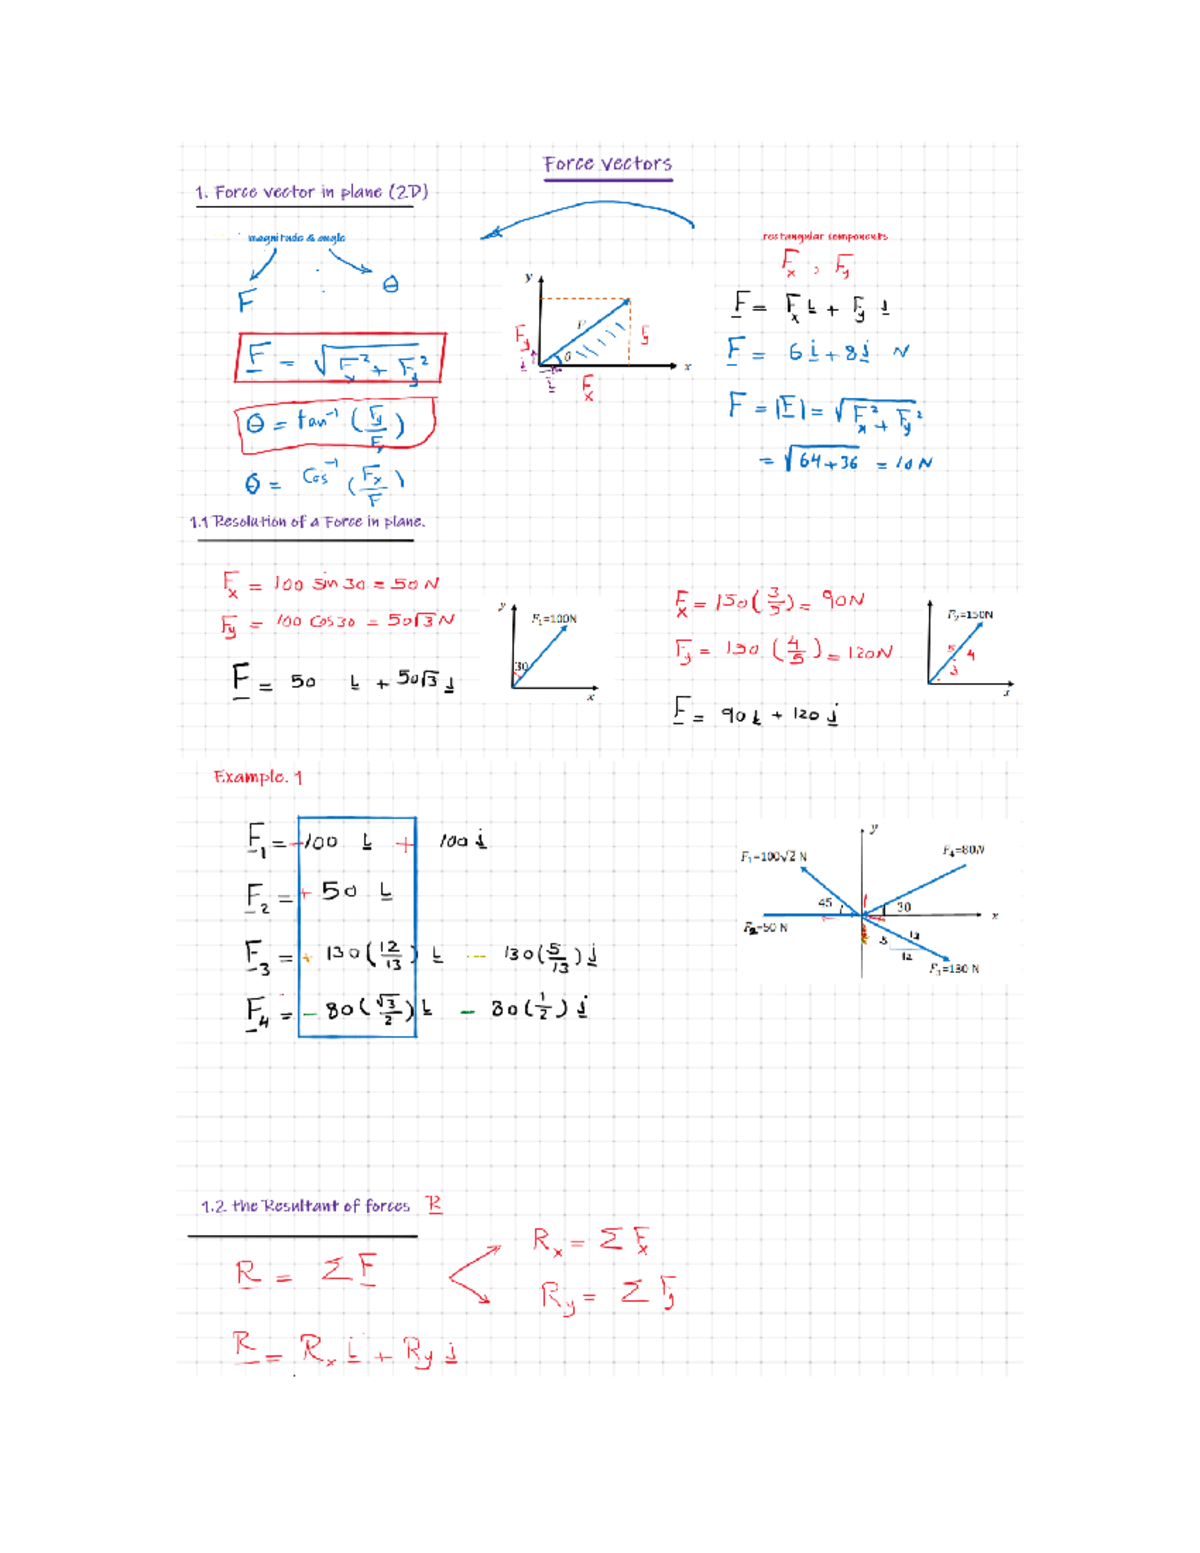 Force vectors
1. Force vector in plane (2D)
magnitude & angle
F
θ
F = √(Fx² + Fy²)
θ = tan⁻¹ (Fy/Fx)
θ = Cos⁻¹ (Fx/F)
y
F
θ
x
Fy
Fy
i
j
Fx
rectangular components
Fx , Fy
F = Fx i + Fy j
F = 6 i + 8 j N
F = |F| = √(Fx² + Fy²)
= √(64+36) = 10 N
1.1 Resolution of a Force in plane.
Fx = 100 sin 30 = 50 N
Fy = 100 Cos 30 = 50√3 N
F = 50 i + 50√3 j
y
F₁=100N
30
x
Fx = 150 (3/5) = 90N
Fy = 150 (4/5) = 120N
F = 90 i + 120 j
F₂=150N
5
4
3
x
Example. 1
F1 = -100 i + 100 j
F2 = + 50 i
F3 = + 130 (12/13) i - 130 (5/13) j
F4 = - 80 (√3/2) i - 80 (1/2) j
y
F₁=100√2 N
F₄=80N
45
30
x
F₂=50 N
5
13
12
F₃=130 N
1.2 the Resultant of forces R
R = Σ F
Rx = Σ Fx
Ry = Σ Fy
R = Rx i + Ry j